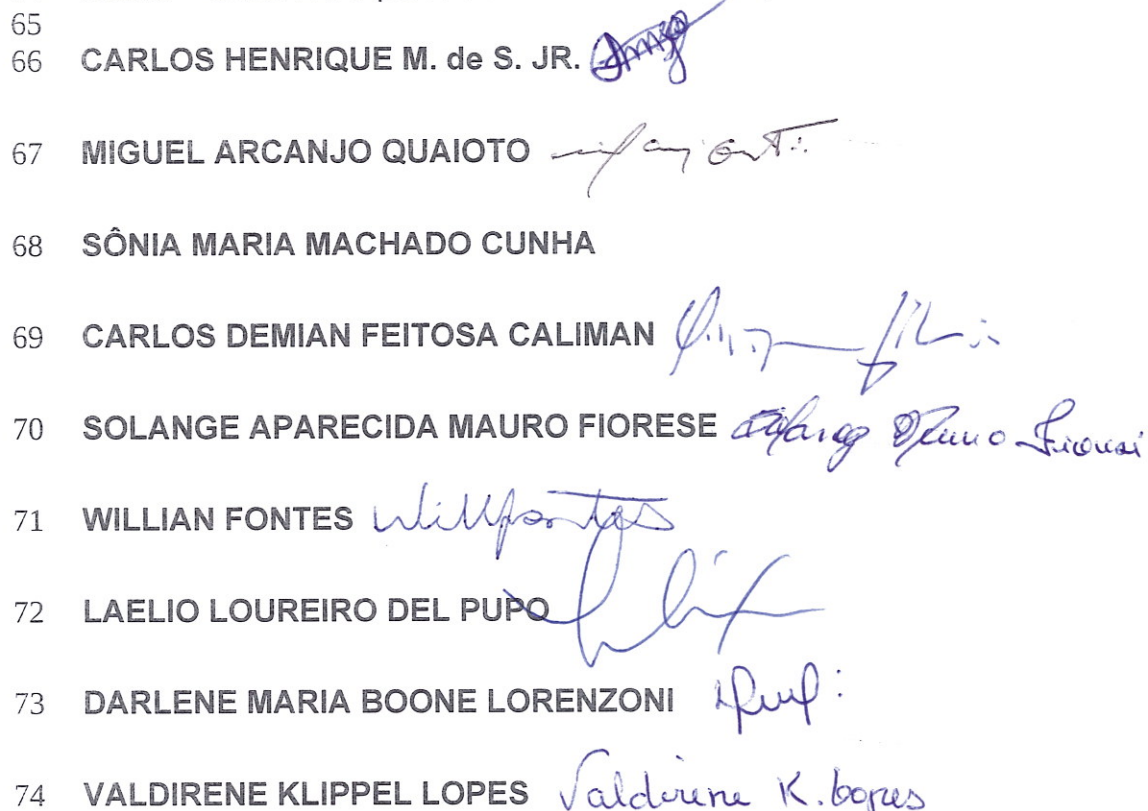 65
66 CARLOS HENRIQUE M. de S. JR.
67 MIGUEL ARCANJO QUAIOTO
68 SÔNIA MARIA MACHADO CUNHA
69 CARLOS DEMIAN FEITOSA CALIMAN
70 SOLANGE APARECIDA MAURO FIORESE
71 WILLIAN FONTES Willfontes
72 LAELIO LOUREIRO DEL PUPO
73 DARLENE MARIA BOONE LORENZONI
74 VALDIRENE KLIPPEL LOPES Valdirene K. Lopes